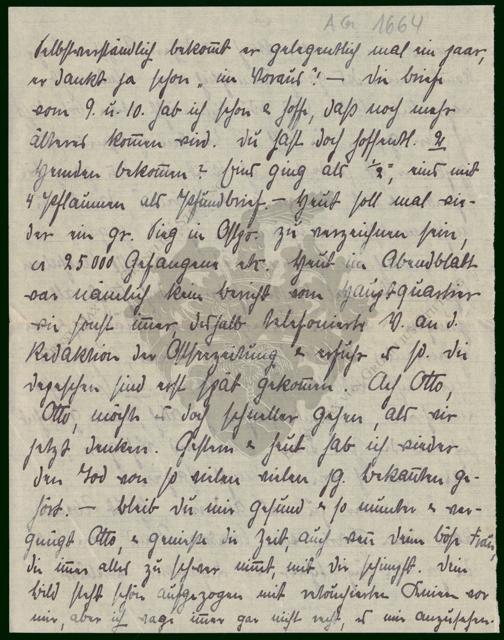 A Gr 1664
Selbstverständlich bekom̅t er gelegentlich mal ein paar,
er dankt ja schon „im Voraus"! — Die Briefe
vom 9. u. 10. hab ich schon & hoffe, daß noch mehr
älteres kom̅en wird. Du hast doch hoffentl. 2
Hemden bekom̅en? Eins ging als "½", eins mit
4 Pflaumen als Pfundbrief. — Heut soll mal wie-
der ein gr. Sieg in Ostpr. zu verzeichnen sein,
25000 Gefangene etc. Heut im Abendblatt
war nämlich kein Bericht vom Hauptquartier
wie sonst im̅er, deshalb telefonierte V. an d.
Redaktion der Ostseezeitung & erfuhr es so. Die
Depeschen sind erst spät gekom̅en. Ach Otto,
Otto, möchte es doch schneller gehen, als wir
jetzt denken. Gestern & heut hab ich wieder
den Tod von so vielen vielen jg. Bekan̅ten ge-
hört. — Bleib Du mir gesund & so munter & ver-
gnügt Otto, & genieße die Zeit, auch wen̅ Deine böse Frau,
die im̅er alles zu schwer nim̅t, mit Dir schimpft. Dein
Bild steht schön aufgezogen mit retouchierten Beinen vor
mir, aber ich wage im̅er gar nicht recht, es mir anzusehen.